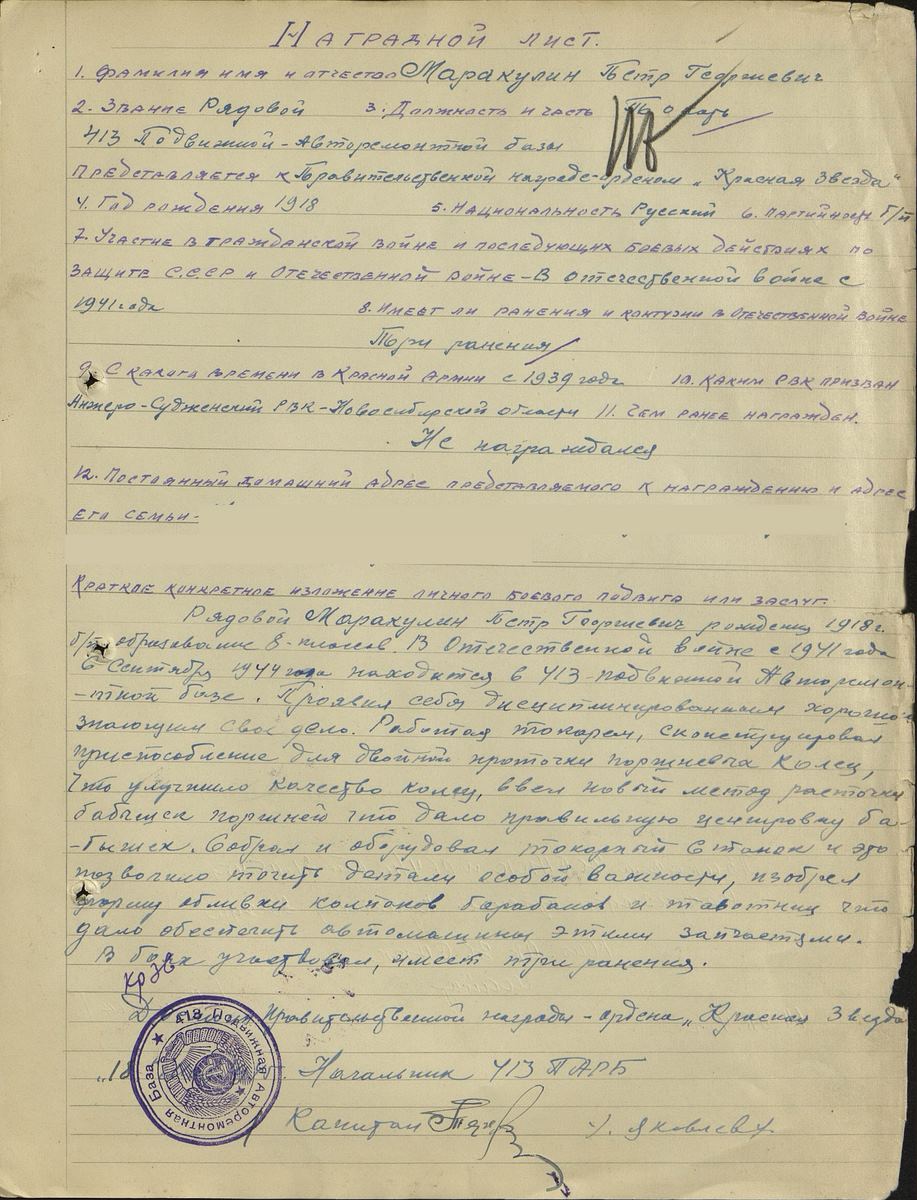 Наградной лист.
1. Фамилия имя и отчество Маракулин Петр Георгиевич
2. Звание Рядовой 3. Должность и часть Токарь
413 Подвижной-Авторемонтной базы
Представляется к Правительственной награде-орденом „Красная Звезда"
4. Год рождения 1918 5. Национальность Русский 6. Партийность б/п
7. Участие в гражданской войне и последующих боевых действиях по
защите С.ССР и Отечественной войне-В Отечественной войне с
1941 года 8. Имеет ли ранения и контузии в Отечественной войне
Три ранения
9. С какого времени в Красной Армии с 1939 года 10. Каким РВК призван
Анжеро-Судженский РВК-Новосибирской области 11. Чем ранее награжден.
Не награждался
12. Постоянный домашний адрес представляемого к награждению и адрес
его семьи-
Краткое конкретное изложение личного боевого подвига или заслуг.
Рядовой Маракулин Петр Георгиевич рождения 1918 г.
б/п образование 8-классов. В Отечественной войне с 1941 года
С Сентября 1944 года находится в 413-подвижной Авторемон-
-тной базе. Проявил себя дисциплинированным хорошо
знающим свое дело. Работая токарем, сконструировал
приспособление для двойной проточки поршневых колец,
что улучшило качество колец, ввел новый метод расточки
бабышек поршней что дало правильную центровку ба-
-бышек. Собрал и оборудовал токарный станок и это
позволило точить детали особой важности, изобрел
форму отливки колпаков барабанов и тавотниц что
дало обеспечить автомашины этими запчастями.
В боях участвовал, имеет три ранения.
КрЗв
Правительственной награды-ордена „Красная Звезда
413 Подвижная Авторемонтная База
„18 Начальник 413 ПАРБ
Капитан /. Яковлев/